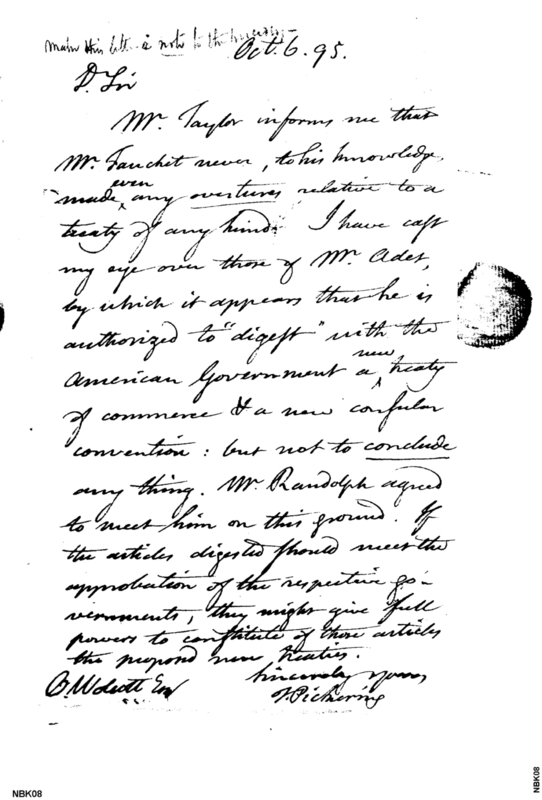 make this letter a note to the
Oct. 6. 95.
D. Sir
Mr. Taylor informs me that
Mr. Fauchet never, to his knowledge,
even
made any overtures relative to a
treaty of any kind. I have cast
my eye over those of Mr. Adet,
by which it appears that he is
authorized to "digest" with the
new
American Government a treaty
of commerce & a new consular
convention: but not to conclude
any thing. Mr. Randolph agreed
to meet him on this ground. If
the articles digested should meet the
approbation of the respective go-
vernments, they might give full
powers to constitute of those articles
the proposed new treaties.
Sincerely yours
O. Wolcott Esq
T. Pickering
NBK08
NBK08